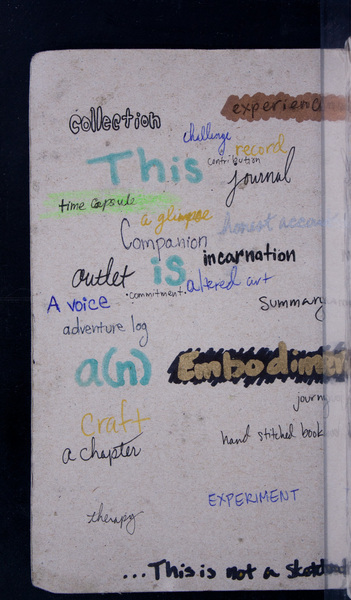 experienc
collection
challenge
record
This
contribution
journal
time capsule
a glimpse
honest accou
Companion
incarnation
outlet
is
altered art
commitment
A voice
Summary
adventure log
a(n)
Embodimen
journ
craft
hand stitched book
a chapter
EXPERIMENT
therapy
...This is not a sketch